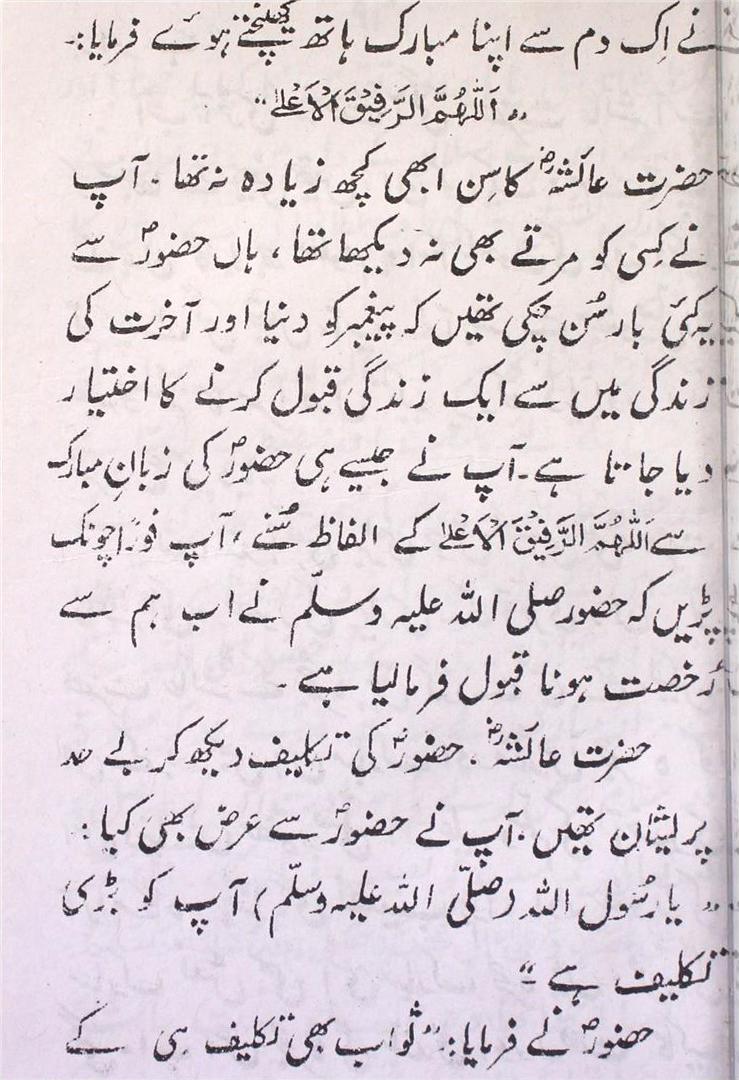 نے اِک دم سے اپنا مبارک ہاتھ کھینچتے ہوئے فرمایا:۔
”اَللّٰھُمَّ الرَّفِیْقَ الْاَعْلٰے“
حضرت عائشہؓ کا سِن ابھی کچھ زیادہ نہ تھا۔ آپ
نے کِسی کو مرتے بھی نہ دیکھا تھا، ہاں حضورؐ سے
یہ کئی بار سُن چکی تھیں کہ پیغمبر کو دنیا اور آخرت کی
زندگی میں سے ایک زندگی قبول کرنے کا اختیار
دیا جاتا ہے۔ آپ نے جیسے ہی حضورؐ کی زبانِ مبارک
سے اَللّٰھُمَّ الرَّفِیْقَ الْاَعْلٰے کے الفاظ سُنے، آپ فوراً چونک
پڑیں کہ حضور صلی اللہ علیہ وسلّم نے اب ہم سے
رخصت ہونا قبول فرما لیا ہے۔
حضرت عائشہؓ۔ حضورؐ کی تکلیف دیکھ کر بے حد
پریشان تھیں۔ آپ نے حضورؐ سے عرض بھی کیا:
”یا رسُول اللہ (صلّی اللہ علیہ وسلّم) آپ کو بڑی
تکلیف ہے“
حضورؐ نے فرمایا: ”ثواب بھی تکلیف ہی کے